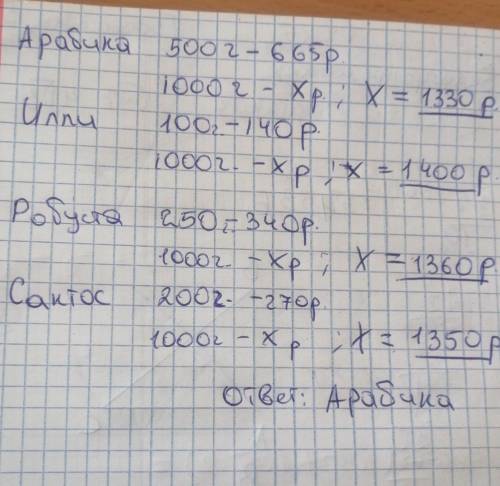 Арабика 500г - 665р
1000г - Xр; X = 1330р
Илли 100г - 140р.
1000г. - Xр; x = 1400р.
Робуста 250г - 340р.
1000г. - Xр; X = 1360р.
Сантос 200г. - 270р.
1000г - Xр; X = 1350р
Ответ: Арабика